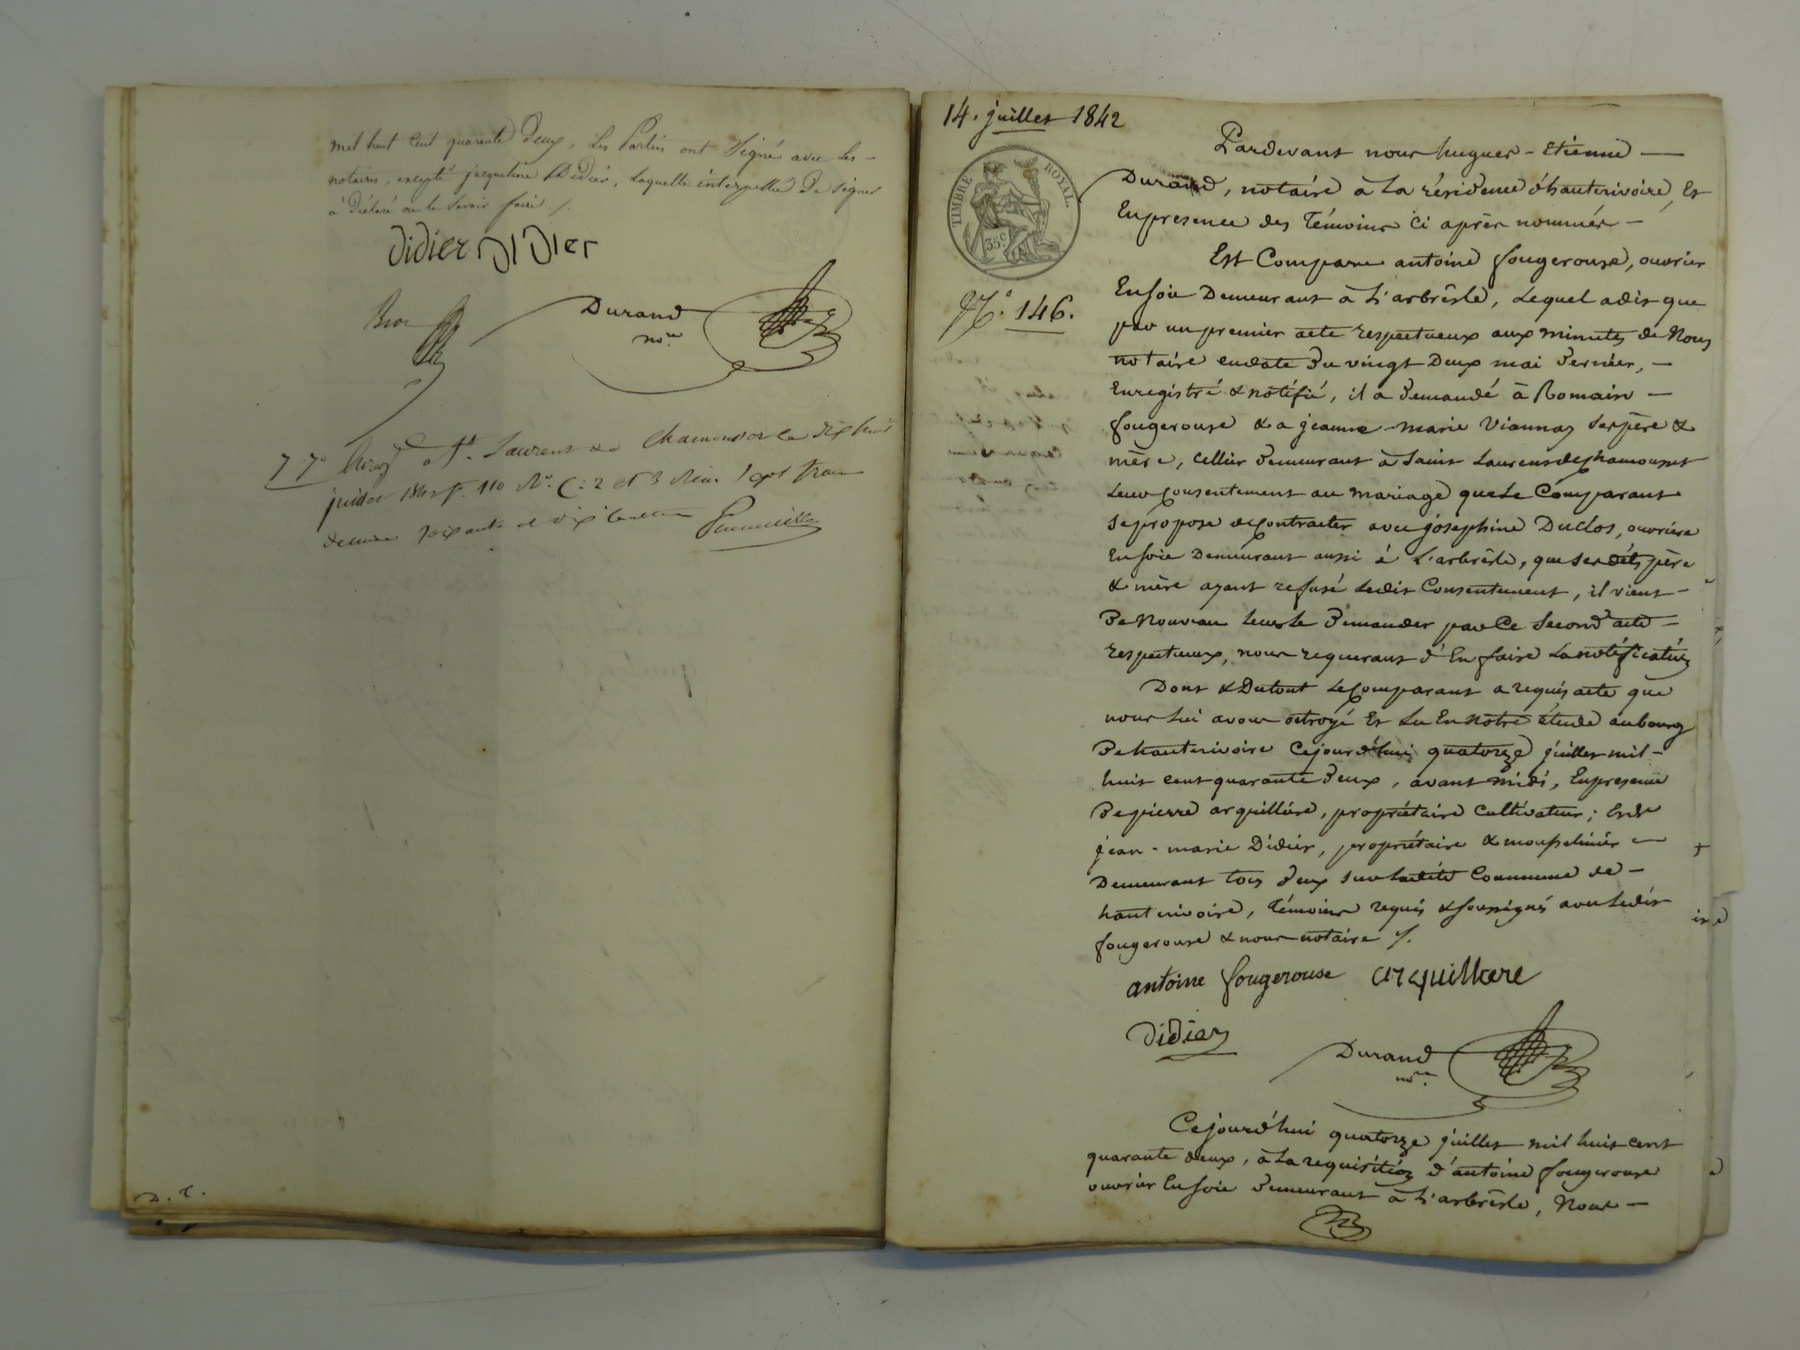 mil huit cent quarante Deux, Les Parties ont Signé avec les-
notaires, excepté jacqueline Didier, Laquelle interpellée De signer
a Déclaré ne le Savoir faire ./.
Didier DIDIer
Durand
nore
St. Laurent de Chamousset le Dix huit
juillet 1842 f. 110 Ro. C. 2 et 3 Reçu Sept francs
Soixante et Dix Centimes
D. T.
14. juillet 1842
TIMBRE ROYAL.
35c
No. 146.
Pardevant nous hugues - Etienne —
Durand, notaire à La résidence d'hauterivoire, Et
En presence des Témoins Ci après nommés —
Est Comparu antoine fougerouse, ouvrier
En soie Demeurant à L'arbrêsle, Lequel a dit que
par un premier acte respectueux aux minutes de Nous
notaire en date Du vingt Deux mai Dernier, —
Enregistré & notifié, il a Demandé à Romain —
fougerouse & a jeanne - marie Viannay Ses père &
mère, cellier Demeurant à Saint Laurent de Chamousset
Leur Consentement au mariage que Le Comparant
Se propose de Contracter avec josephine Duclos, ouvrière
En soie Demeurant aussi à L'arbrêsle, que Ses dits père
& mère ayant refusé Ledit Consentement, il vient —
De Nouveau Leur Le Demander par Ce Second acte —
respectueux, nous requerant d'En faire La notification
Dont & Du tout Le Comparant a requis acte que
nous Lui avons octroyé Et Lu En notre étude au bourg
De hauterivoire Cejourd'hui quatorze juillet mil —
huit cent quarante Deux, avant midi, En presence
De pierre arquillère, propriétaire Cultivateur; Et de
jean - marie Didier, propriétaire & mousselinier —
Demeurant tous Deux Sur Ladite Commune de —
hauterivoire, Témoins requis & Soussignés avec Ledit
fougerouse & nous notaire ./.
antoine fougerouse arquillere
Didier
Durand
nore
Cejourd'hui quatorze juillet mil huit cent
quarante deux, à La requisition d'antoine fougerouse
ouvrier En soie Demeurant à L'arbrêsle, Nous —